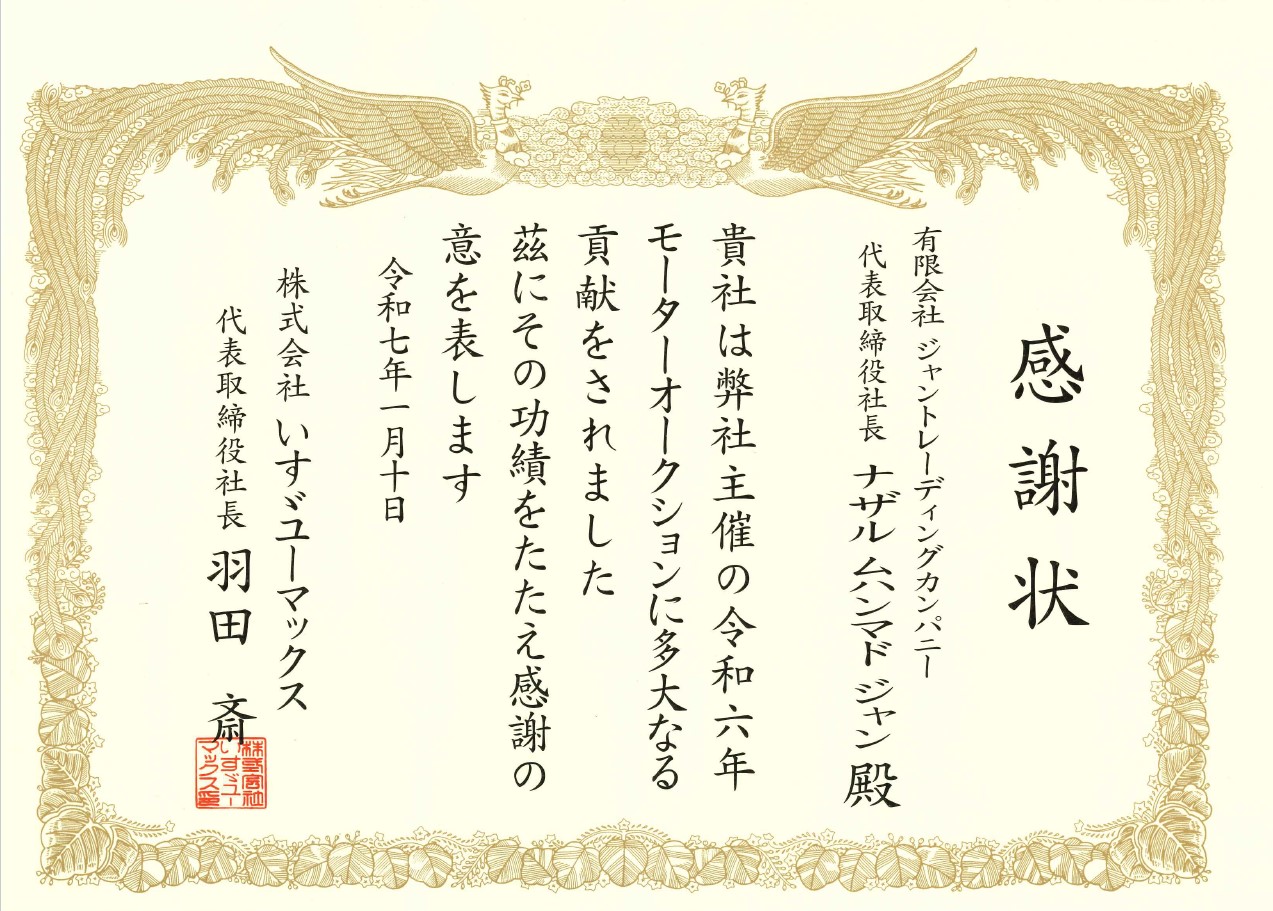 感謝状
有限会社 ジャントレーディングカンパニー
代表取締役社長 ナザル ムハンマド ジャン 殿
貴社は弊社主催の令和六年
モーターオークションに多大なる
貢献をされました
茲にその功績をたたえ感謝の
意を表します
令和七年一月十日
株式会社 いすゞユーマックス
代表取締役社長 羽田 斎
株式会社
いすゞユー
マックス印